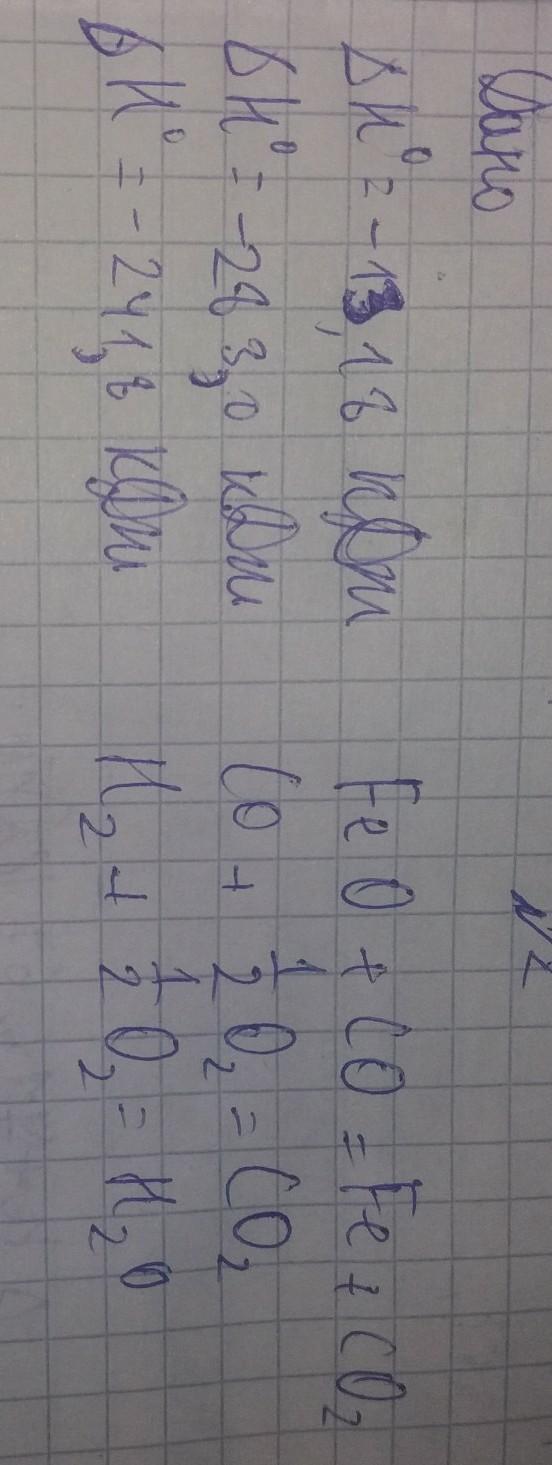 Дано
№2
ΔH⁰ = -13,18 кДж FeO + CO = Fe + CO₂
ΔH⁰ = -283,0 кДж CO + 1/2 O₂ = CO₂
ΔH⁰ = -241,8 кДж H₂ + 1/2 O₂ = H₂O